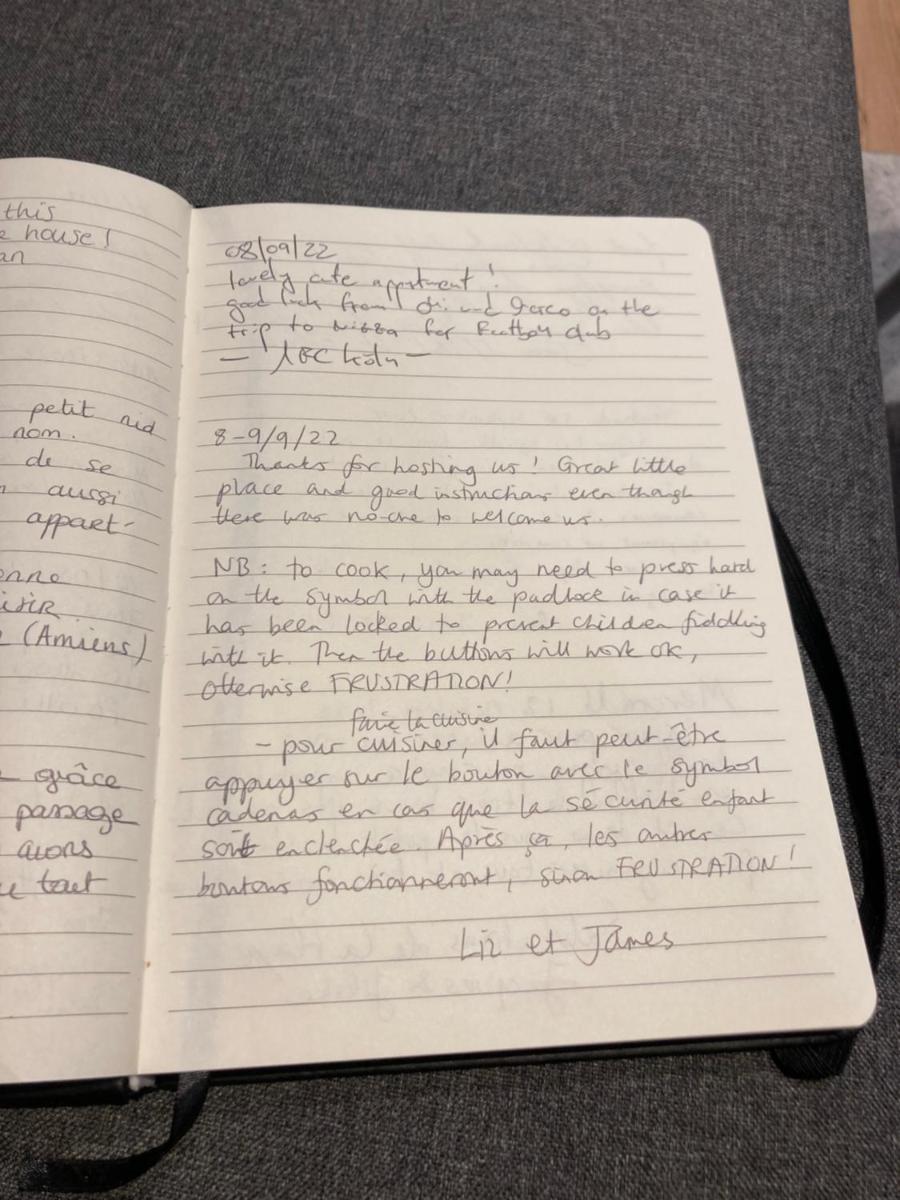 this
house!
an
petit nid
nom.
de se
aussi
appart-
(Amiens)
grâce
passage
avons
tout
08/09/22
lovely cute appartment!
good luck from and on the
trip to for Football club
—  Köln —
8-9/9/22
Thanks for hosting us! Great little
place and good instructions even though
there was no-one to welcome us.
NB: to cook, you may need to press hard
on the symbol with the padlock in case it
has been locked to prevent children fiddling
with it. Then the buttons will work ok,
otherwise FRUSTRATION!
faire la cuisine
- pour cuisiner, il faut peut-être
appuyer sur le bouton avec le symbol
cadenas en cas que la sécurité enfant
soit enclenchée. Après ça, les autres
boutons fonctionneront, sinon FRUSTRATION!
Liz et James